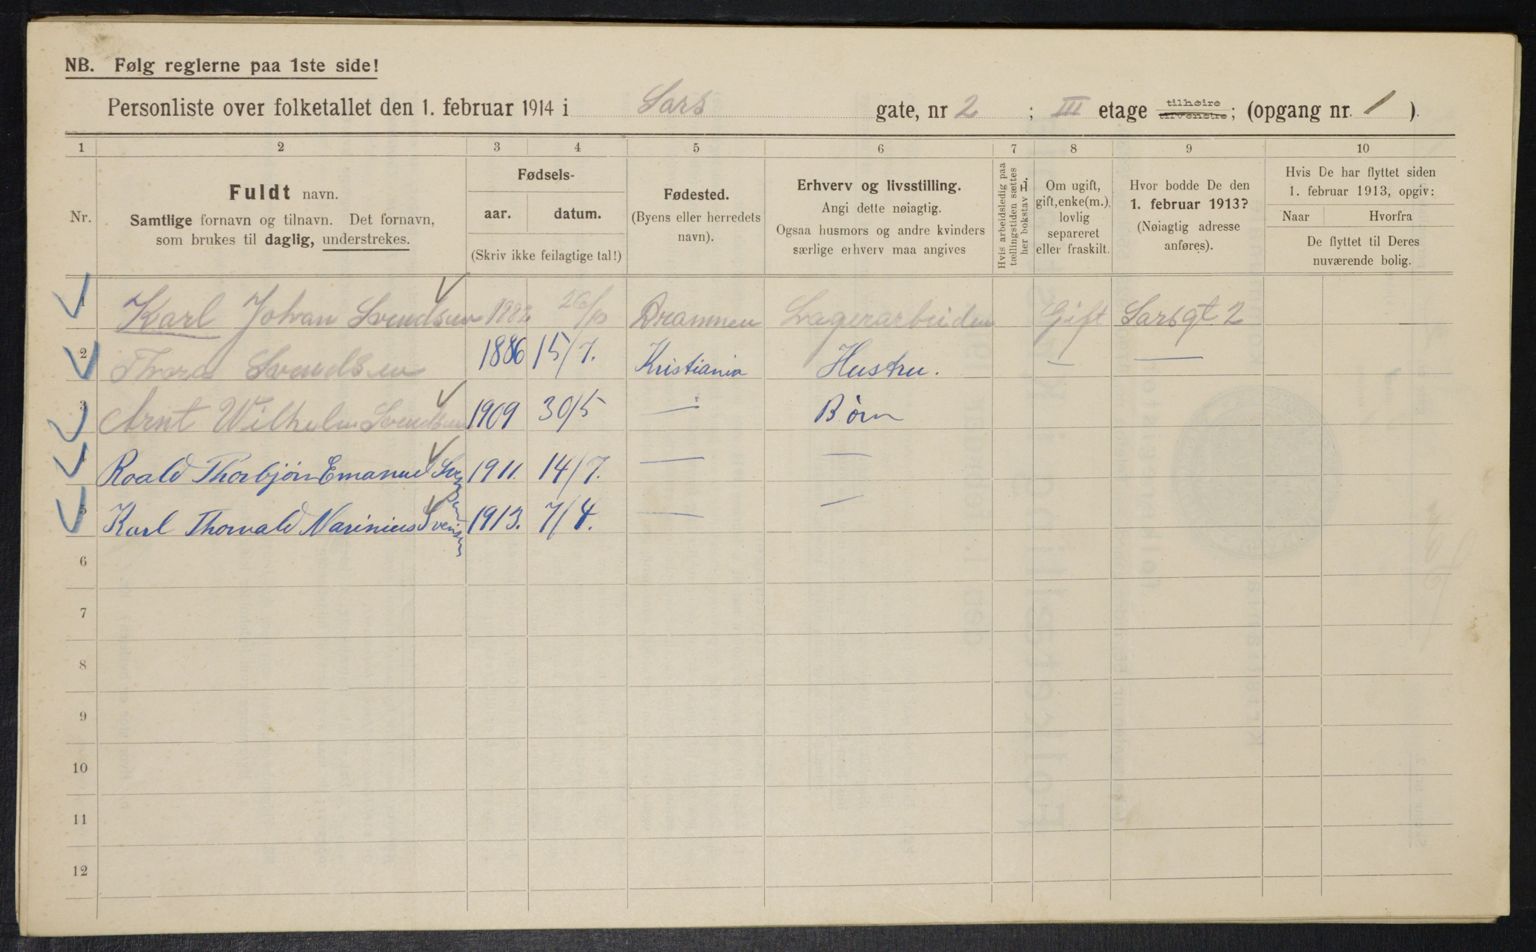 NB. Følg reglerne paa 1ste side!
Personliste over folketallet den 1. februar 1914 i Sars gate, nr 2 ; III etage tilhøire ; (opgang nr. 1 ).
1 2 3 4 5 6 7 8 9 10
Nr.
Fuldt navn.
Samtlige fornavn og tilnavn. Det fornavn,
som brukes til daglig, understrekes.
Fødsels-
aar. datum.
(Skriv ikke feilagtige tal!)
Fødested.
(Byens eller herredets
navn).
Erhverv og livsstilling.
Angi dette nøiagtig.
Ogsaa husmors og andre kvinders
særlige erhverv maa angives
Hvis arbeidsledig paa
tællingstiden sættes
her bokstav L.
Om ugift,
gift, enke(m.),
lovlig
separeret
eller fraskilt.
Hvor bodde De den
1. februar 1913?
(Nøiagtig adresse
anføres).
Hvis De har flyttet siden
1. februar 1913, opgiv:
Naar Hvorfra
De flyttet til Deres
nuværende bolig.
1 Karl Johan Svendsen Drammen Lagerarbeider Gift Sarsgt 2
2 Thora Svendsen 1886 15/7. Kristiania Hustru. — —
3 Arnt Wilhelm Svendsen 1909 30/5 — Børn
4 Roald Thorbjørn Emanuel Svendsen 1911. 14/7. — —
5 Karl Thorvald Marinius Svendsen 1913. 7/4. — —
6
7
8
9
10
11
12